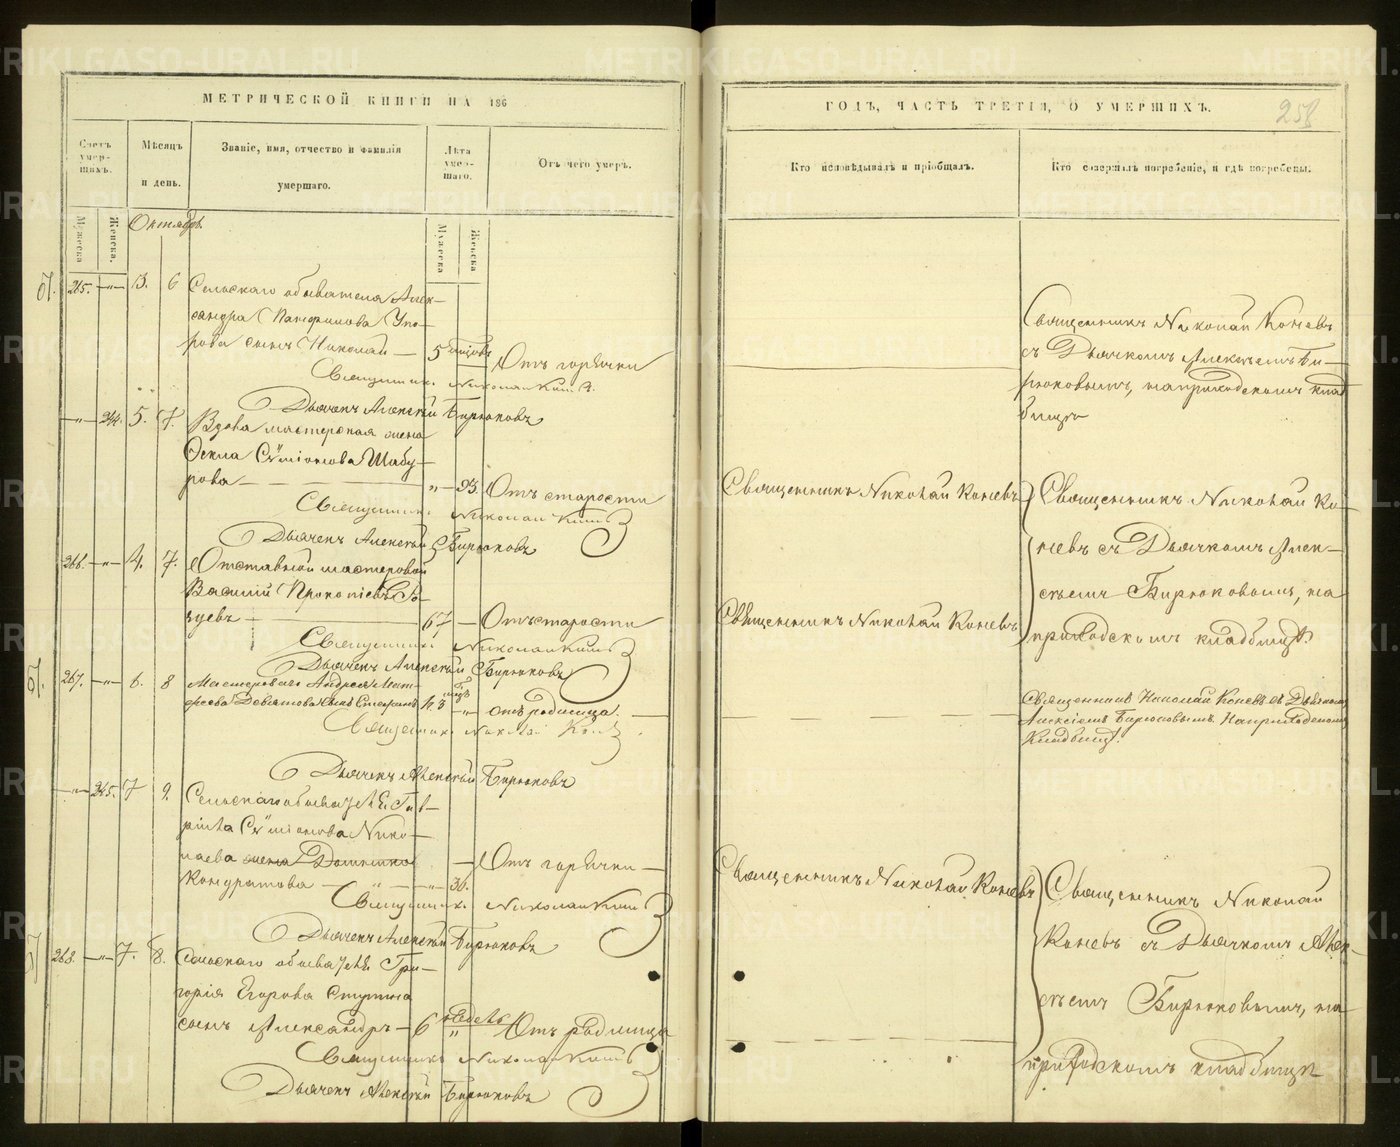 МЕТРИЧЕСКОЙ КНИГИ НА 186
Счетъ умер-шихъ.
Мѣсяцъ и день.
Званіе, имя, отчество и фамилія умершаго.
Лѣта умер-шаго.
Отъ чего умеръ.
Мужеска
Женска.
Мужеска
Женска
Октябрь
265. —„— 3. 6 Сельскаго обывателя Алек-
сандра Панфилова Упо-
рова сынъ Николай — 5 мѣсяцовъ Отъ горячки
Священникъ Николай Коневъ
Дьячекъ Алексѣй Бирюковъ
—„— 244. 5. 7. Вдова мастерская жена
Фекла Сѵміонова Шабу-
рова — „ — 93. Отъ старости
Священникъ Николай Коневъ
Дьячекъ Алексѣй Бирюковъ
266. —„— 4. 7. Отставной мастеровой
Василій Прокопіевъ
67 — Отъ старости
Священникъ Николай Коневъ
Дьячекъ Алексѣй Бирюковъ
267. —„— 6. 8 Мастероваго Андрея Мат-
фѣева Девятова сынъ Стефанъ
отъ родимца.
Священникъ Николай Коневъ
Дьячекъ Алексѣй Бирюковъ
—„— 245. 7 9. Сельскаго обывателя Гав-
ріила Сѵміонова Нико-
лаева жена Домника
Кондратова — „ — 36. Отъ горячки —
Священникъ Николай Коневъ
Дьячекъ Алексѣй Бирюковъ
268. —„— 7. 8. Сельскаго обывателя Гри-
горія Егорова Ступина
сынъ Александръ — 6 недель Отъ родимца
Священникъ Николай Коневъ
Дьячекъ Алексѣй Бирюковъ
ГОДЪ, ЧАСТЬ ТРЕТІЯ, О УМЕРШИХЪ.
258
Кто исповѣдывалъ и пріобщалъ.
Кто совершалъ погребеніе, и гдѣ погребены.
Священникъ Николай Коневъ
съ Дьячкомъ Алексѣемъ Би-
рюковымъ, на приходскомъ клад
бищѣ
Священникъ Николай Коневъ
Священникъ Николай Ко-
невъ съ Дьячкомъ Алек-
сѣемъ Бирюковымъ, на
приходскомъ кладбищѣ.
Священникъ Николай Коневъ
Священникъ Николай Коневъ съ Дьячкомъ
Алексѣемъ Бирюковымъ. На приходскомъ
Кладбищѣ.
Священникъ Николай Коневъ
Священникъ Николай
Коневъ съ Дьячкомъ Алек-
сѣемъ Бирюковымъ, на
приходскомъ кладбищѣ
METRIKI.GASO-URAL.RU